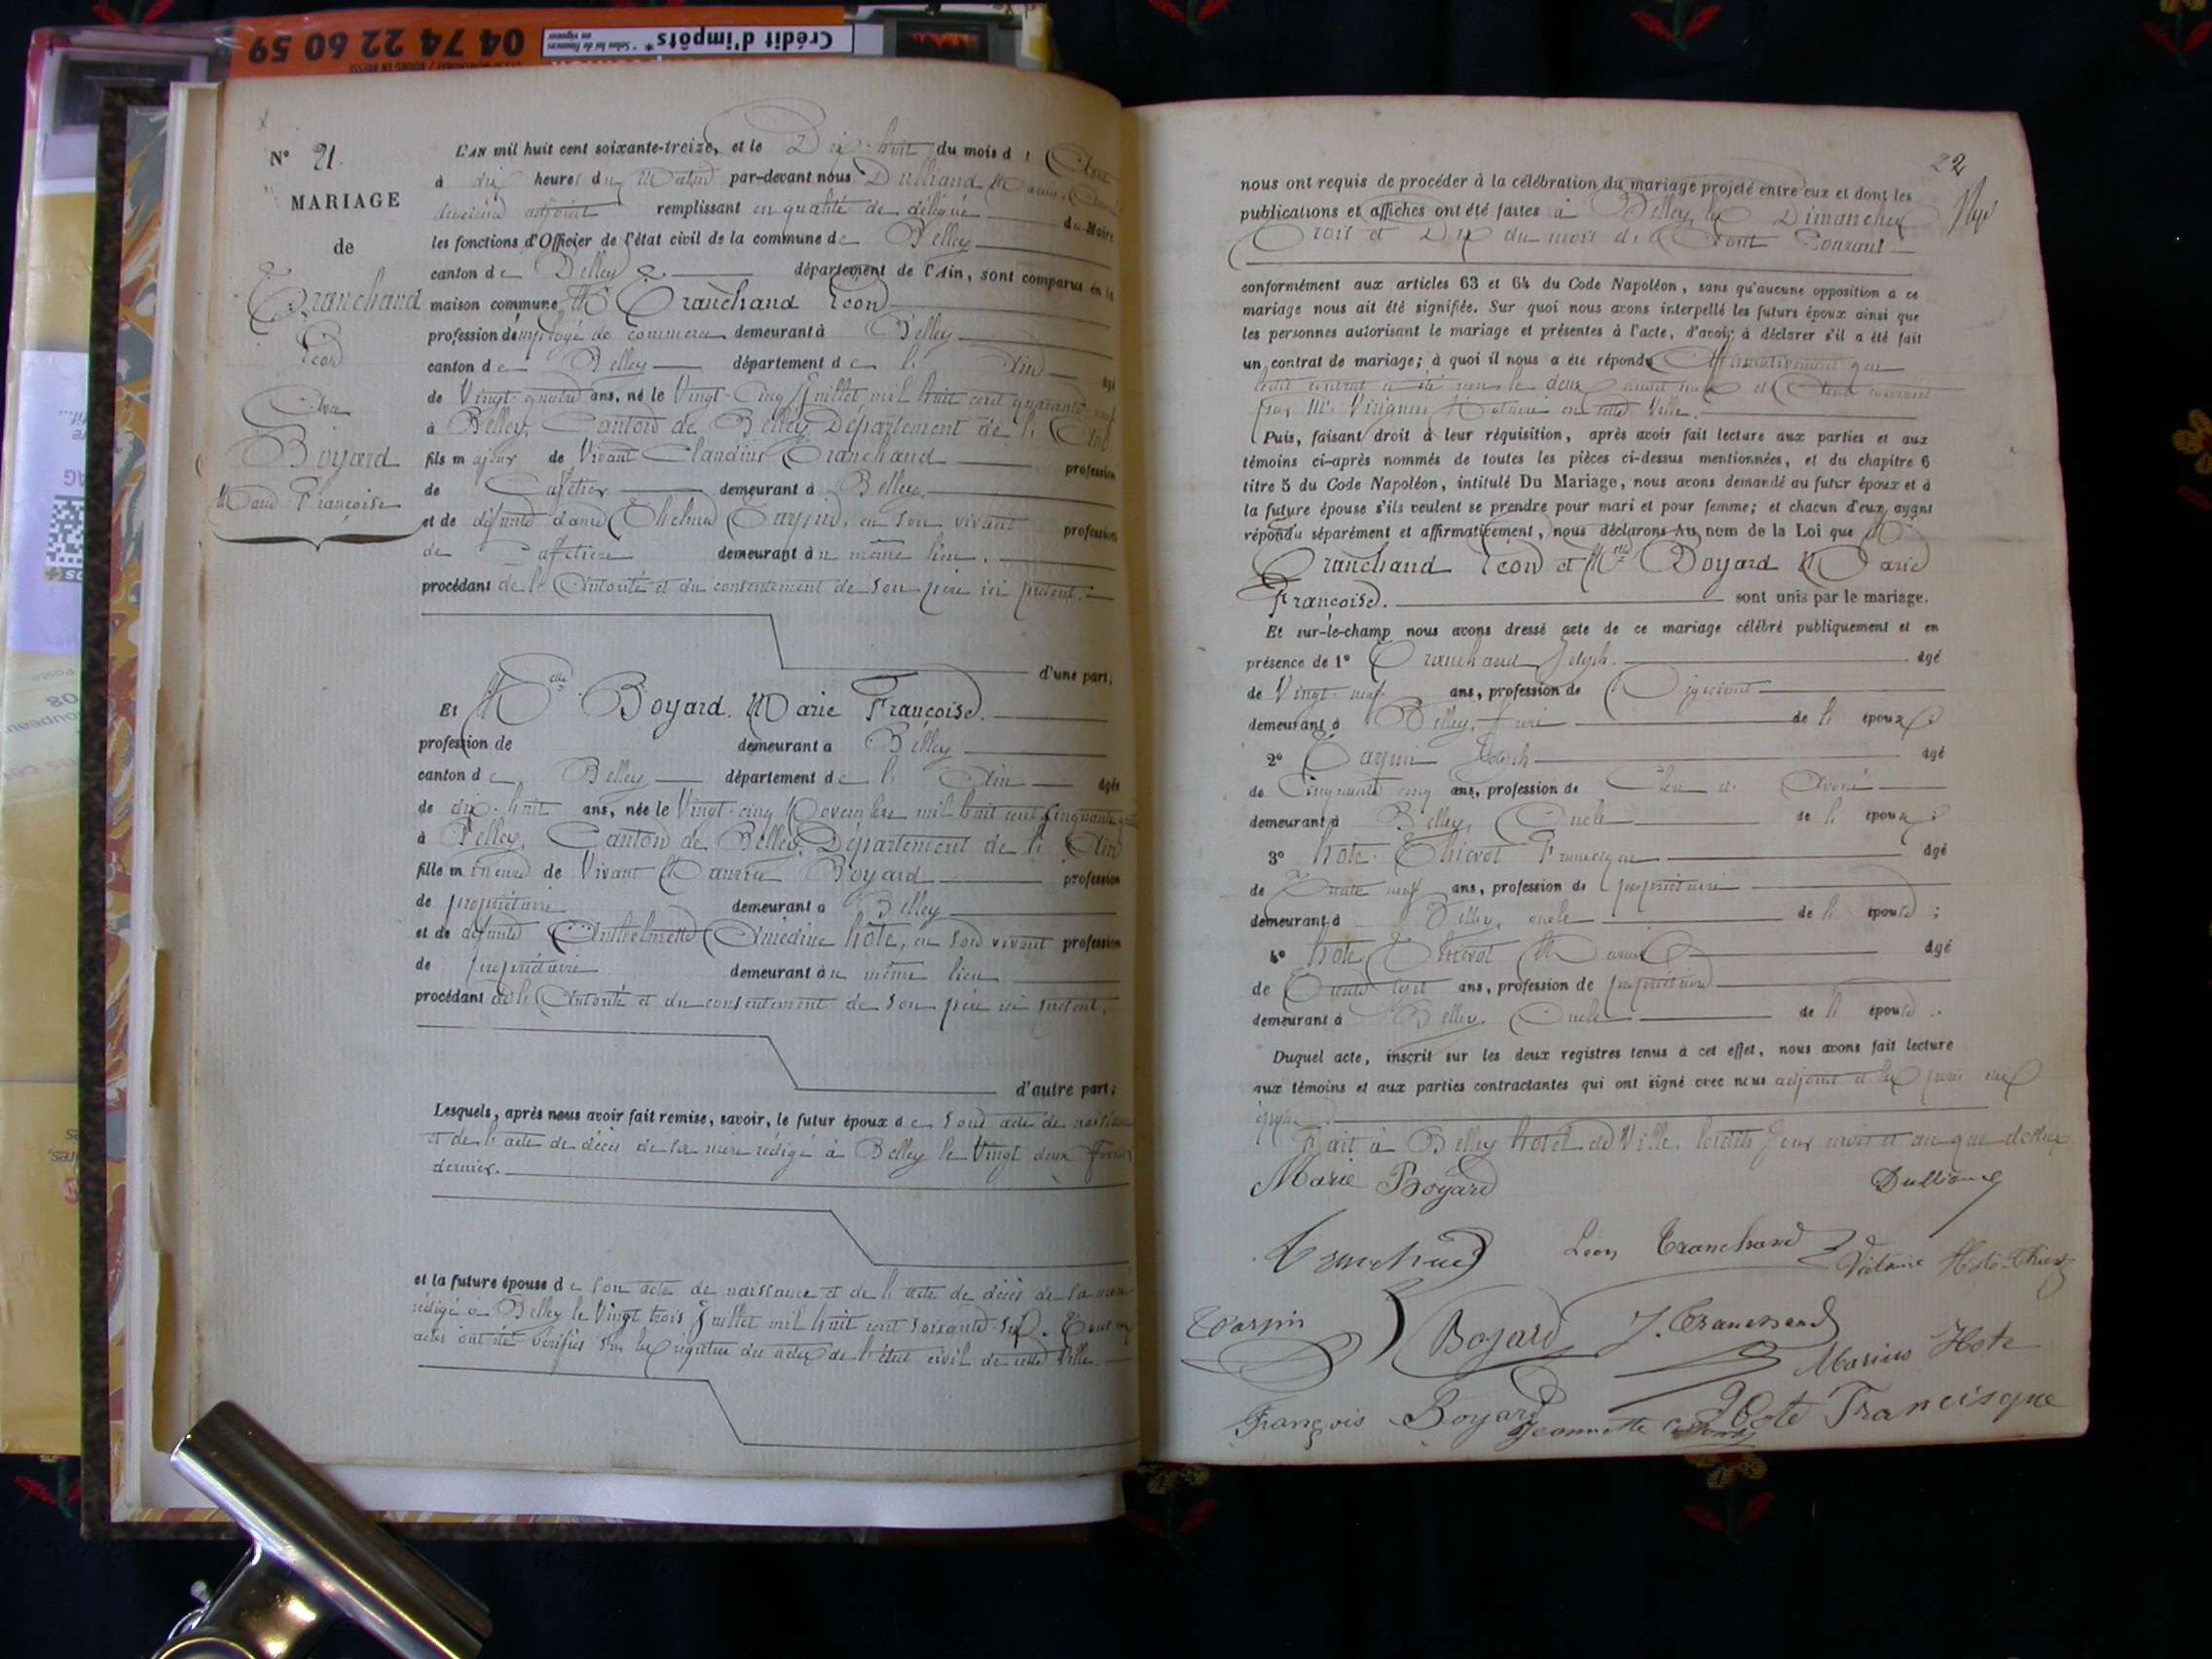 04 74 22 60 59
Crédit d'impôts *
N° 21.
MARIAGE
de
Tranchand
Léon
Et
Boyard
Marie Françoise
L'AN mil huit cent soixante-treize, et le Dix-huit du mois d'Août
à dix heures du Matin par-devant nous Dulliand
deuxième adjoint remplissant en qualité de délégué du Maire
les fonctions d'Officier de l'état civil de la commune de Belley
canton de Belley département de l'Ain, sont comparus en la
maison commune Mr Tranchand Léon
profession d'employé de commerce demeurant à Belley
canton de Belley département de l'Ain âgé
de Vingt-quatre ans, né le Vingt-Cinq Juillet mil huit cent quarante-neuf
à Belley, Canton de Belley, Département de l'Ain
fils majeur de Vivant Claudius Tranchand profession
de Cafetier demeurant à Belley.
et de défunte dame Thelma Carpin, en son vivant profession
de Cafetière demeurant au même lieu.
procédant de l'Autorité et du consentement de son père ici présent.
d'une part;
Et Mlle Boyard Marie Françoise.
profession de demeurant à Belley
canton de Belley département de l'Ain âgée
de dix-huit ans, née le Vingt-cinq Novembre mil huit cent cinquante
à Belley, Canton de Belley, Département de l'Ain
fille mineure de Vivant Boyard profession
de propriétaire demeurant à Belley
et de défunte Anthelmette Amédine hôte, en son vivant profession
de propriétaire demeurant au même lieu
procédant de l'Autorité et du consentement de son père ici présent.
d'autre part;
Lesquels, après nous avoir fait remise, savoir, le futur époux de son acte de naissance
et de l'acte de décès de sa mère rédigé à Belley le Vingt deux février
dernier.
et la future épouse de son acte de naissance et de l'acte de décès de sa mère
rédigé à Belley le Vingt trois Juillet mil huit cent soixante-sept. Tous ces
actes ont été vérifiés sur les registres des actes de l'état civil de cette Ville.
22
nous ont requis de procéder à la célébration du mariage projeté entre eux et dont les
publications et affiches ont été faites à Belley, les Dimanches
Trois et Dix du mois de Août Courant
conformément aux articles 63 et 64 du Code Napoléon, sans qu'aucune opposition à ce
mariage nous ait été signifiée. Sur quoi nous avons interpellé les futurs époux ainsi que
les personnes autorisant le mariage et présentes à l'acte, d'avoir à déclarer s'il a été fait
un contrat de mariage; à quoi il nous a été répondu Affirmativement que
ledit contrat a été reçu le deux du mois de Août courant
par Me Notaire en cette Ville.
Puis, faisant droit à leur réquisition, après avoir fait lecture aux parties et aux
témoins ci-après nommés de toutes les pièces ci-dessus mentionnées, et du chapitre 6
titre 5 du Code Napoléon, intitulé Du Mariage, nous avons demandé au futur époux et à
la future épouse s'ils veulent se prendre pour mari et pour femme; et chacun d'eux ayant
répondu séparément et affirmativement, nous déclarons Au nom de la Loi que Mr
Tranchand Léon et Mlle Boyard Marie
Françoise. sont unis par le mariage.
Et sur-le-champ nous avons dressé acte de ce mariage célébré publiquement et en
présence de 1° Tranchand Joseph. âgé
de Vingt-neuf ans, profession de Négociant
demeurant à Belley, frère de l'époux;
2° Carpin Joseph âgé
de Cinquante cinq ans, profession de Clerc d'Avoué
demeurant à Belley, Oncle de l'époux;
3° hôte-Thievot Francisque âgé
de Trente neuf ans, profession de propriétaire
demeurant à Belley, oncle de l'épouse;
4° hôte Thievot Marius âgé
de Trente sept ans, profession de propriétaire
demeurant à Belley. Oncle de l'épouse.
Duquel acte, inscrit sur les deux registres tenus à cet effet, nous avons fait lecture
aux témoins et aux parties contractantes qui ont signé avec nous adjoint et les pères des
époux.
Fait à Belley hotel de Ville. lesdits Jour mois et an que dessus
Marie Boyard Dulliand
Tranchand Léon Tranchand Victorine Hote-Thievot
Carpin Boyard J. Tranchand Marius Hote
François Boyard Jeannette Hote Francisque